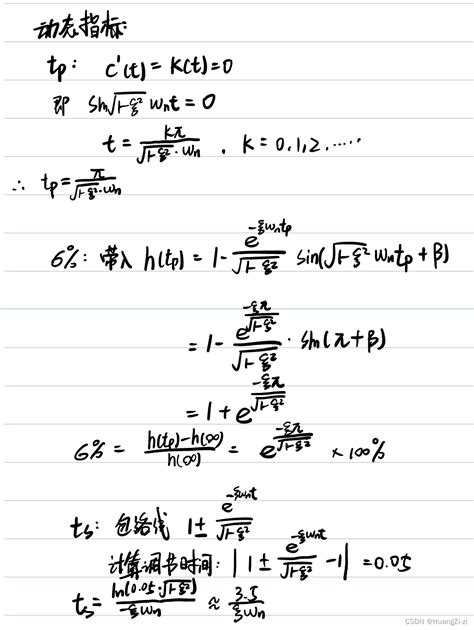 动态指标:
tp: c'(t) = k(t) = 0
即 sin√(1-ξ²) ωnt = 0
t = kπ/(√(1-ξ²)·ωn) , k = 0,1,2,·····
∴ tp = π/(√(1-ξ²)·ωn)
σ%: 带入 h(tp) = 1 - e^(-ξωntp)/√(1-ξ²) sin(√(1-ξ²) ωntp + β)
= 1 - e^(-ξπ/√(1-ξ²))/√(1-ξ²) · sin(π+β)
= 1 + e^(-ξπ/√(1-ξ²))
σ% = (h(tp)-h(∞))/h(∞) = e^(-ξπ/√(1-ξ²)) × 100%
ts: 包络线 1 ± e^(-ξωnt)/√(1-ξ²)
计算调节时间: | 1 ± e^(-ξωnt)/√(1-ξ²) - 1 | = 0.05
ts = ln(0.05·√(1-ξ²))/(-ξωn) ≈ 3.5/(ξωn)
CSDN @HuangZi-zi